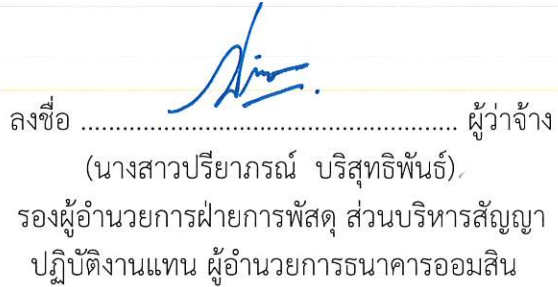 ลงชื่อ ........................................................ ผู้ว่าจ้าง
(นางสาวปรียาภรณ์ บริสุทธิพันธ์)
รองผู้อำนวยการฝ่ายการพัสดุ ส่วนบริหารสัญญา
ปฏิบัติงานแทน ผู้อำนวยการธนาคารออมสิน